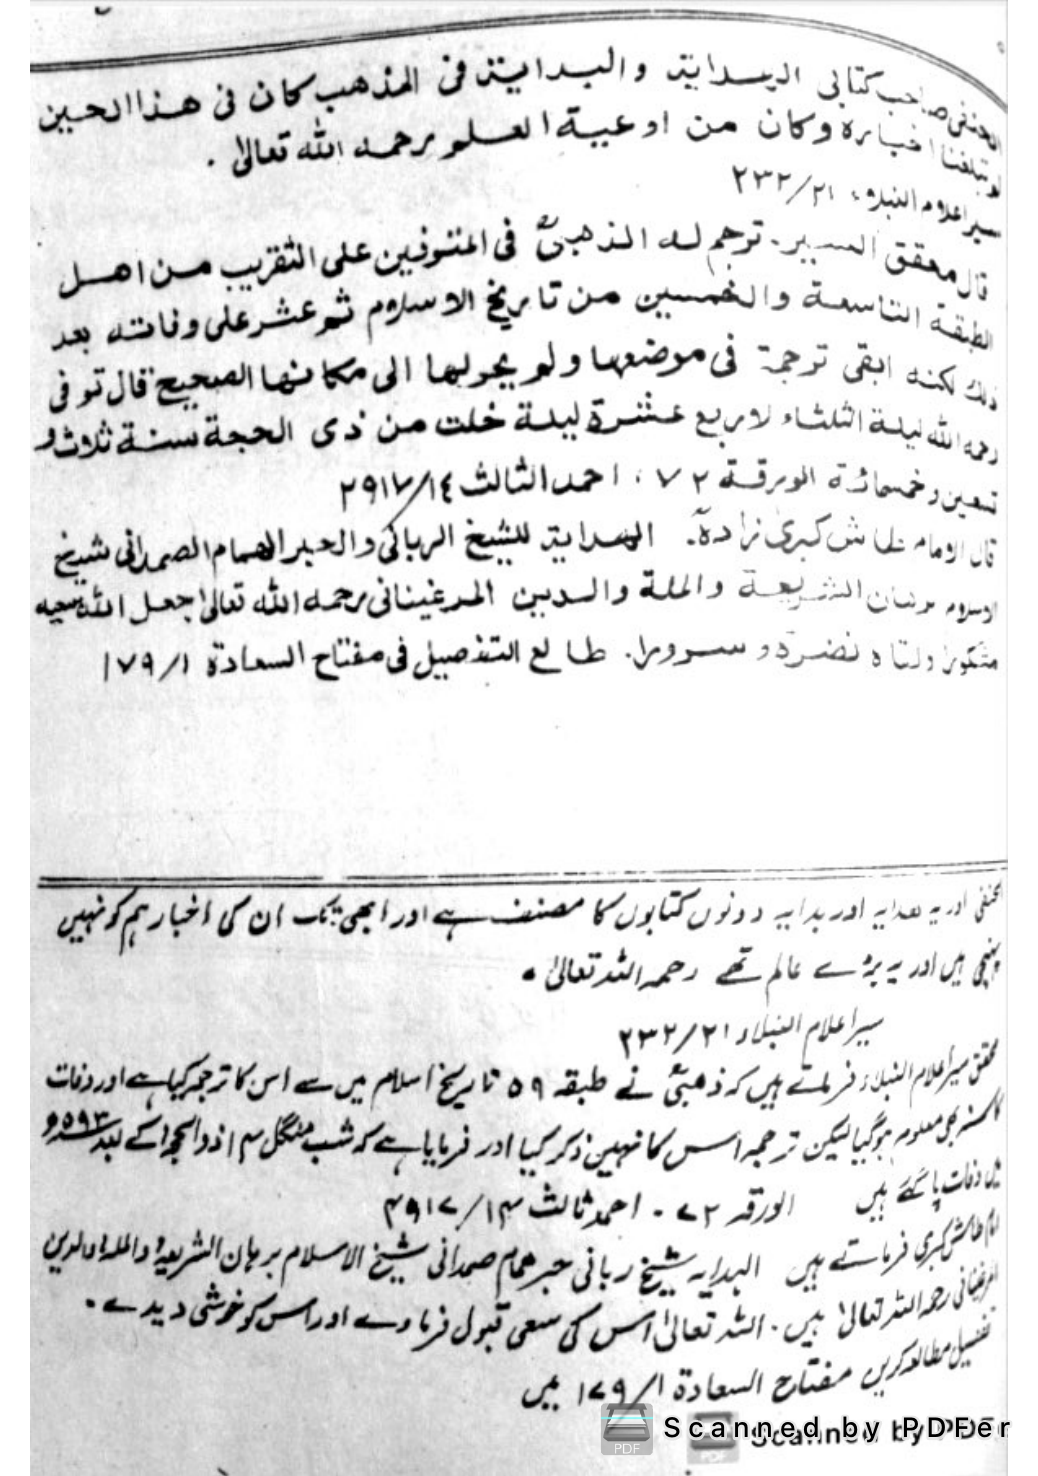 الحنفی صاحب کتابی الهدایة والبدایة فی المذهب کان فی هذا الحین
لم تبلغنا اخباره وکان من اوعیة العلم رحمه الله تعالیٰ .
سیر اعلام النبلاء ۲۳۲/۲۱
قال محقق السیر. ترجم له الذهبیؒ فی المتوفین علی التقریب من اهل
الطبقة التاسعة والخمسین من تاریخ الاسلام ثم عثر علی وفاته بعد
ذلك لکنه ابقی ترجمة فی موضعها ولم یحولها الی مکانها الصحیح قال توفی
رحمه الله لیلة الثلثاء لاربع عشرة لیلة خلت من ذی الحجة سنة ثلاث و
تسعین وخمسمائة الورقة ۷۲ ، احمد الثالث ۲۹۱۷/۱۴
قال الامام طاش کبریٰ زادهؒ. الهدایة للشیخ الربانی والحبر الهمام الصمدانی شیخ
الاسلام برهان الشریعة والملة والدین المرغینانی رحمه الله تعالیٰ جعل الله سعیه
مشکورا ولقاه نضرة وسرورا. طالع التفصیل فی مفتاح السعادة ۱۷۹/۱
الحنفی اور یہ ھدایہ اور بدایہ دونوں کتابوں کا مصنف ہے اور ابھی تک ان کی اخبار ہم کو نہیں
پہنچی ہیں اور یہ بڑے عالم تھے رحمہ اللہ تعالیٰ .
سیر اعلام النبلاء ۲۳۲/۲۱
محقق سیر اعلام النبلاء فرماتے ہیں کہ ذھبیؒ نے طبقہ ۵۹ تاریخ اسلام میں سے اس کا ترجمہ کیا ہے اور وفات
کا سنہ بھی معلوم ہو گیا لیکن ترجمہ اس کا نہیں ذکر کیا اور فرمایا ہے کہ شب منگل ۱۴ ذوالحجہ کے بعد ۵۹۳
میں وفات پا گئے ہیں الورقہ ۷۲ . احمد ثالث ۲۹۱۷/۱۴
امام طاش کبری فرماتے ہیں الہدایہ شیخ ربانی حبر ھمام صمدانی شیخ الاسلام برہان الشریعۃ والملۃ والدین
المرغینانی رحمہ اللہ تعالیٰ ہیں. اللہ تعالیٰ اس کی سعی قبول فرماوے اور اس کو خوشی دیدے .
تفصیل مطالعہ کریں مفتاح السعادة ۱۷۹/۱ میں
Scanned by PDFer
Scanned by PDFer